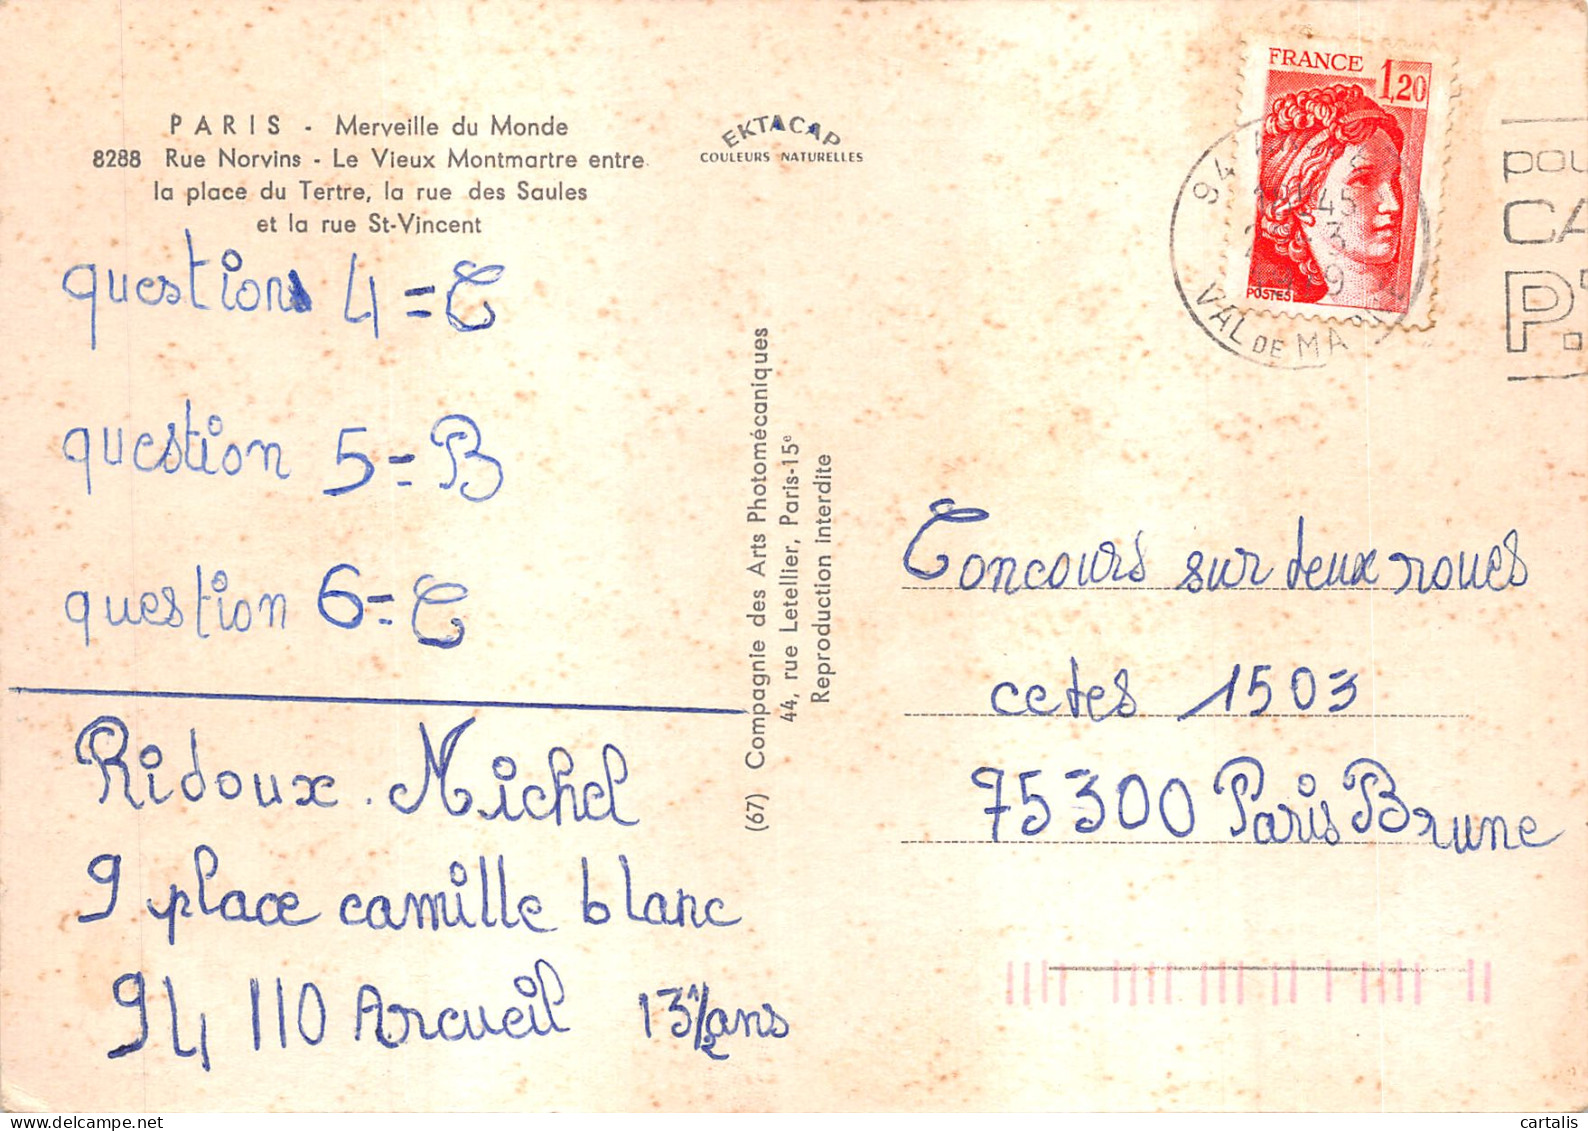 PARIS - Merveille du Monde
8288 Rue Norvins - Le Vieux Montmartre entre
la place du Tertre, la rue des Saules
et la rue St-Vincent
EKTACAP
COULEURS NATURELLES
question 4 = C
question 5 = B
question 6 = C
Ridoux. Michel
9 place camille blanc
94 110 Arcueil 13 1/2 ans
(67) Compagnie des Arts Photomécaniques
44, rue Letellier, Paris-15e
Reproduction interdite
FRANCE 1,20
POSTES
94
45
3
VAL DE MA
pou
CA
P.
Concours sur deux roues
cetes 1503
75300 Paris Brune
cartalis